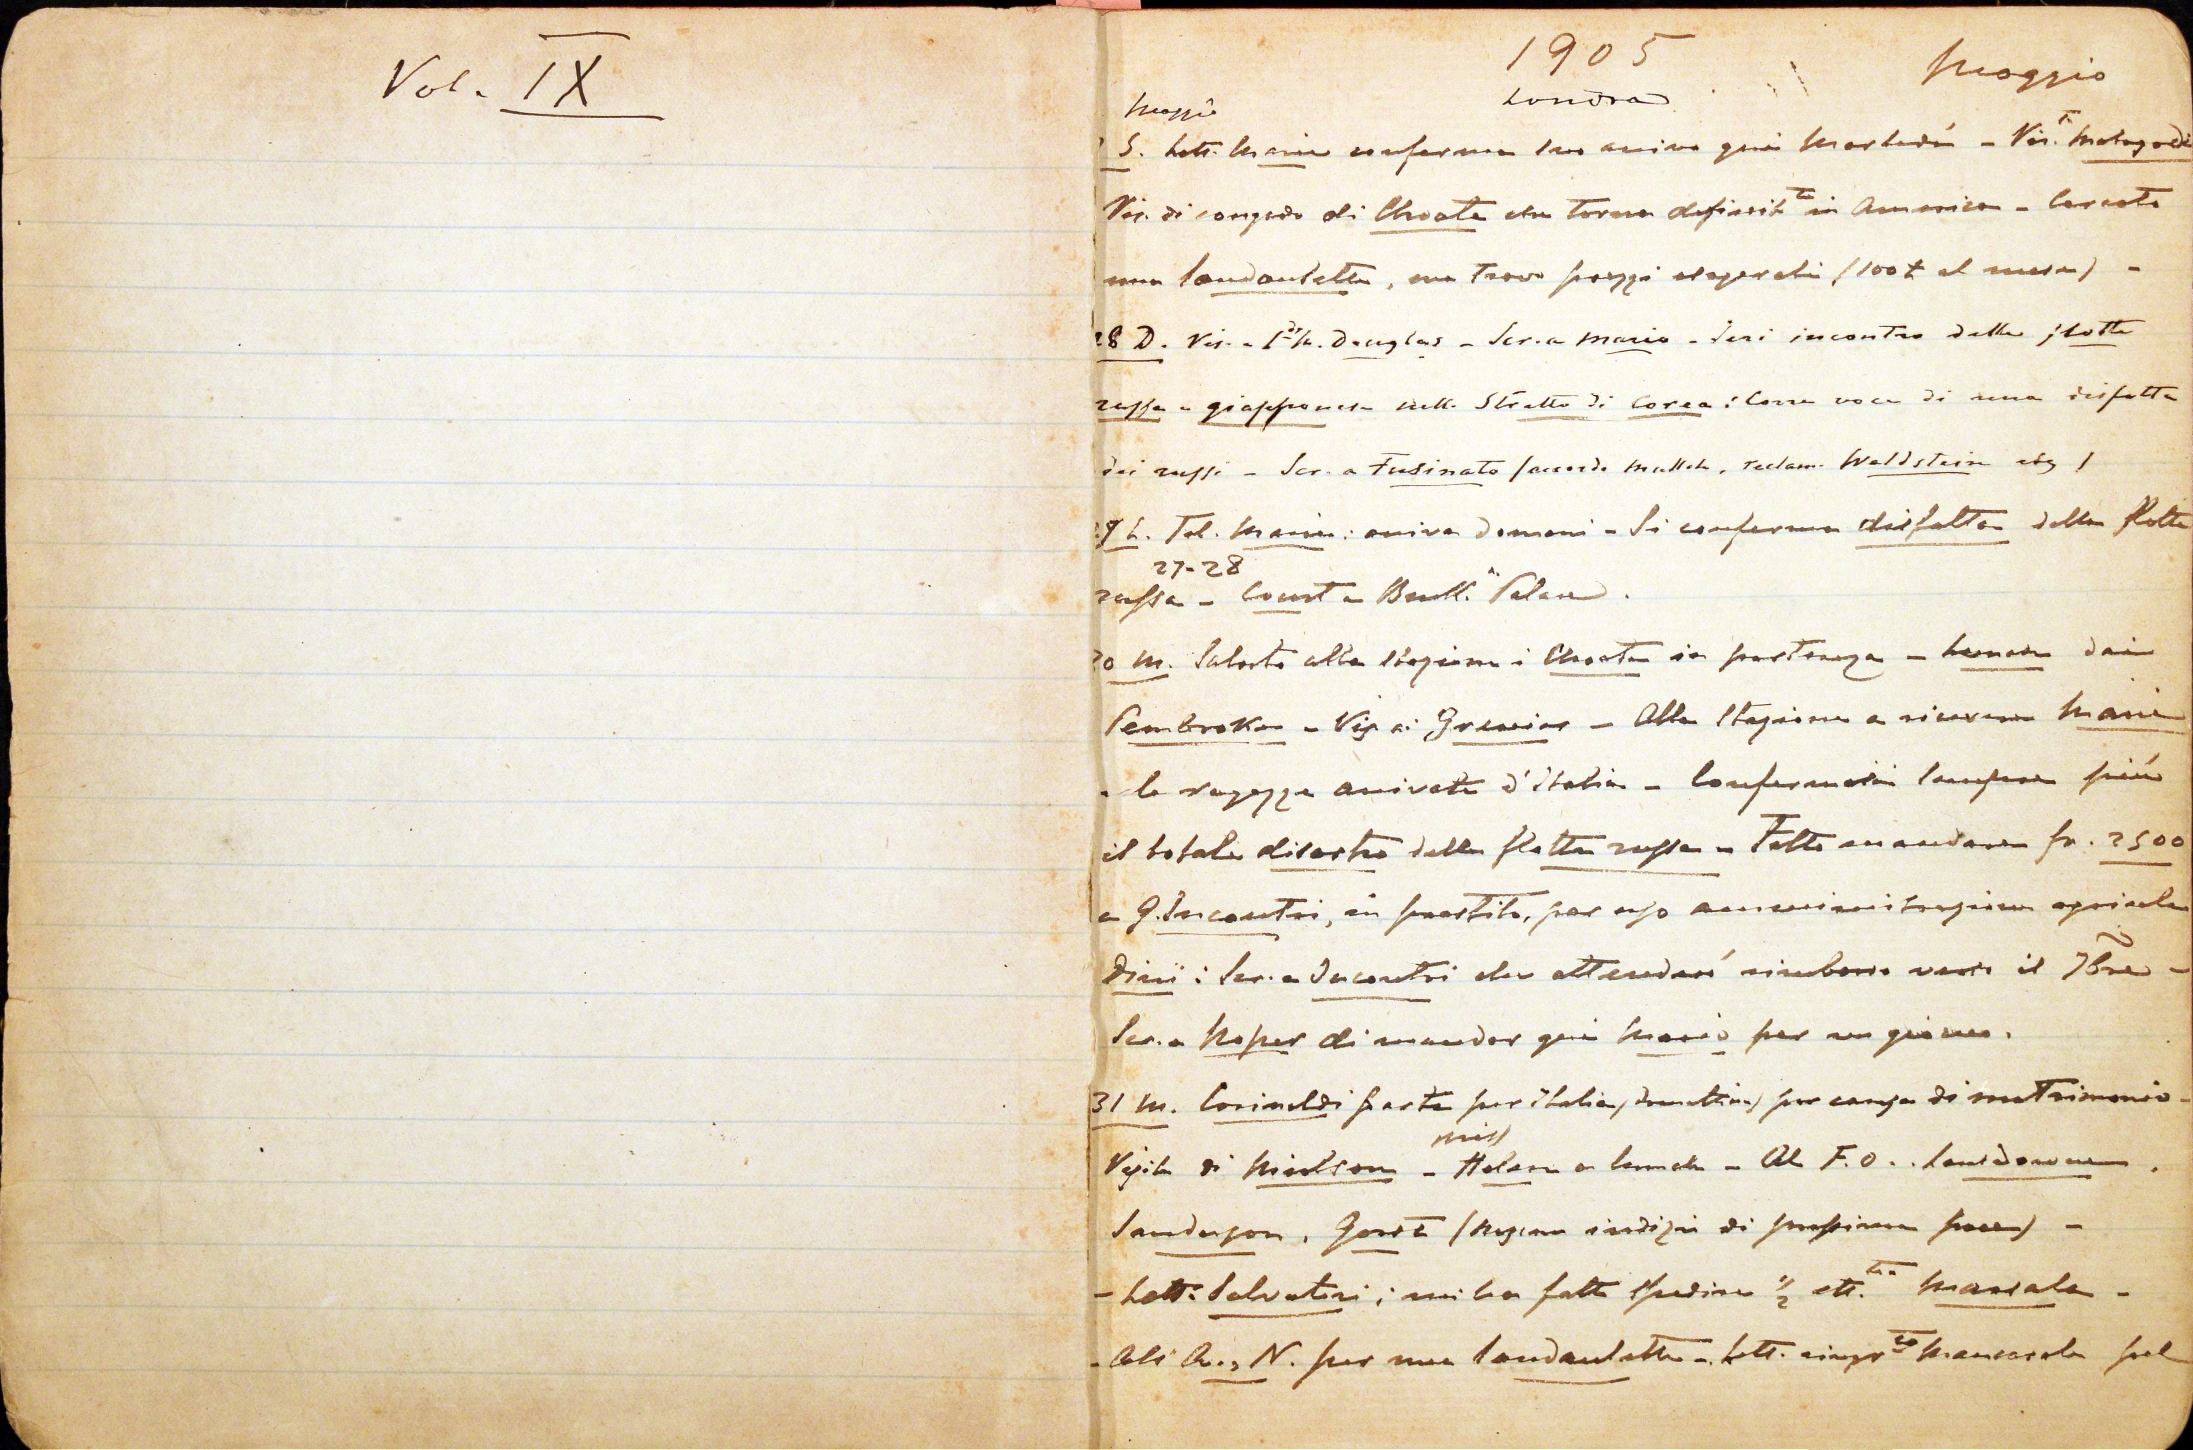 Vol. IX
1905
Maggio
Londra
Maggio
S. Lett. Maria conferma suo arrivo qui Martedí - Vis. Malagordi
Vis. di congedo di Choate che torna definitte in America - Cercato
una landaulette, ma trovo prezzi esagerati (100£ al mese) -
28 D. Vis. a Ly M. Douglas - Scr. a Mario - Ieri incontro delle flotte
russa e giapponese nello Stretto di Corea: Corre voce di una disfatta
dei russi - Scr. a Fusinato (accordo Mullah, reclam. Waldstein etc)
29 L. Tel. Maria: arriva domani - Si conferma disfatta della flotta
27-28
russa - Court a Buck. Palace.
30 M. Salutato alla stazione i Choate in partenza - Lunch dai
Pembroke - Vis. ai Grenier - Alla stazione a ricevere Maria
e le ragazze arrivate d'Italia - Confermasi sempre più
il totale disastro della flotta russa - Fatto mandare fr. 2500
a G. Incontri, in prestito, per uso amministrazione agricola
Dini: Scr. a Incontri che attenderó rimborso verso il 7bre -
Scr. a Roper di mandar qui Mario per un giorno.
31 M. Corinaldi parte per Italia, stamattina, per causa di matrimonio -
Miss
Visita di Mielson - Helen a lunch - Al F.O.. Lansdowne,
Sanderson, Gorst (nessun indizio di prossima pace) -
- Lett. Salvatori; mi ha fatto spedire 1/2 ett. Marsala -
- Agli A. & N. per una landaulette - Lett. ringr. to Mancarola pel